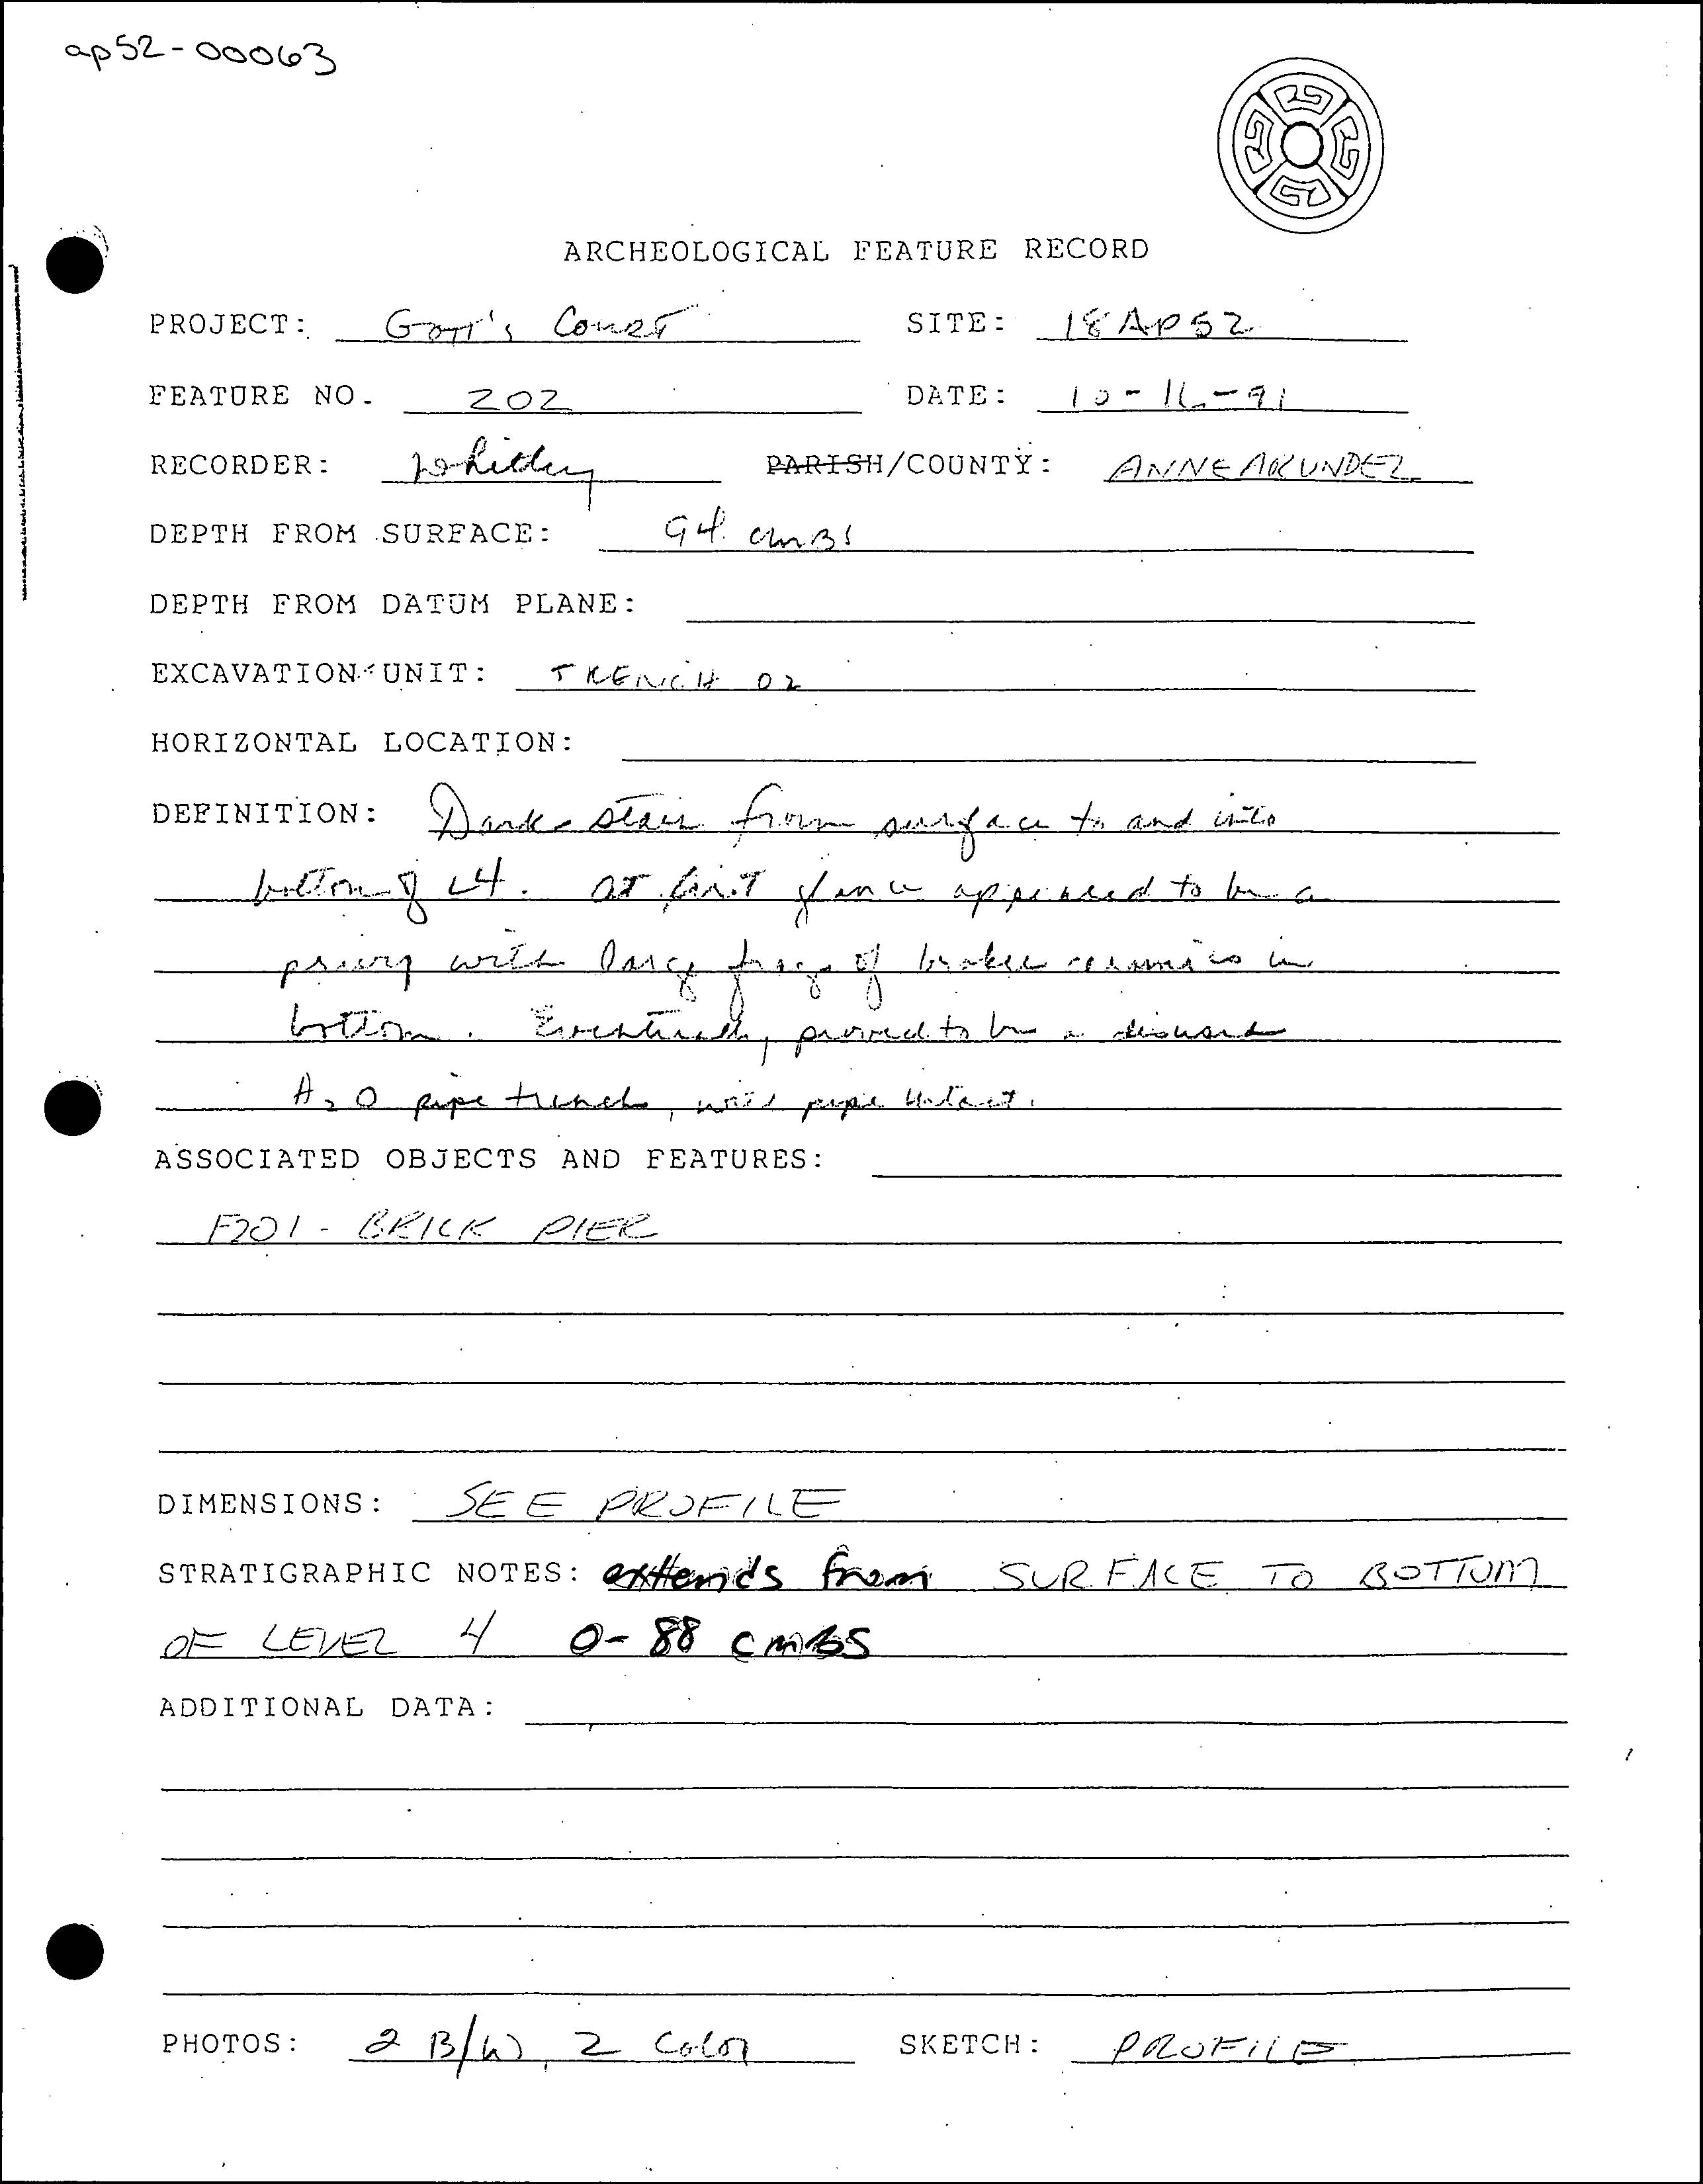 ap52-00063
ARCHEOLOGICAL FEATURE RECORD
PROJECT: Gott's Court SITE: 18AP52
FEATURE NO. 202 DATE: 10-16-91
RECORDER: Whitley PARISH/COUNTY: ANNE ARUNDEL
DEPTH FROM SURFACE: 94 cmBS
DEPTH FROM DATUM PLANE:
EXCAVATION UNIT: TRENCH 02
HORIZONTAL LOCATION:
DEFINITION: Dark stain from surface to and into
bottom of L4. at first glance appeared to be a
privy with large frags of broken ceramics in
bottom. Eventually, proved to be a
H2O pipe trench, with pipe intact.
ASSOCIATED OBJECTS AND FEATURES:
F201 - BRICK PIER
DIMENSIONS: SEE PROFILE
STRATIGRAPHIC NOTES: extends from SURFACE TO BOTTOM
OF LEVEL 4 0-88 cmBS
ADDITIONAL DATA:
PHOTOS: 2 B/W, 2 Color SKETCH: PROFILE